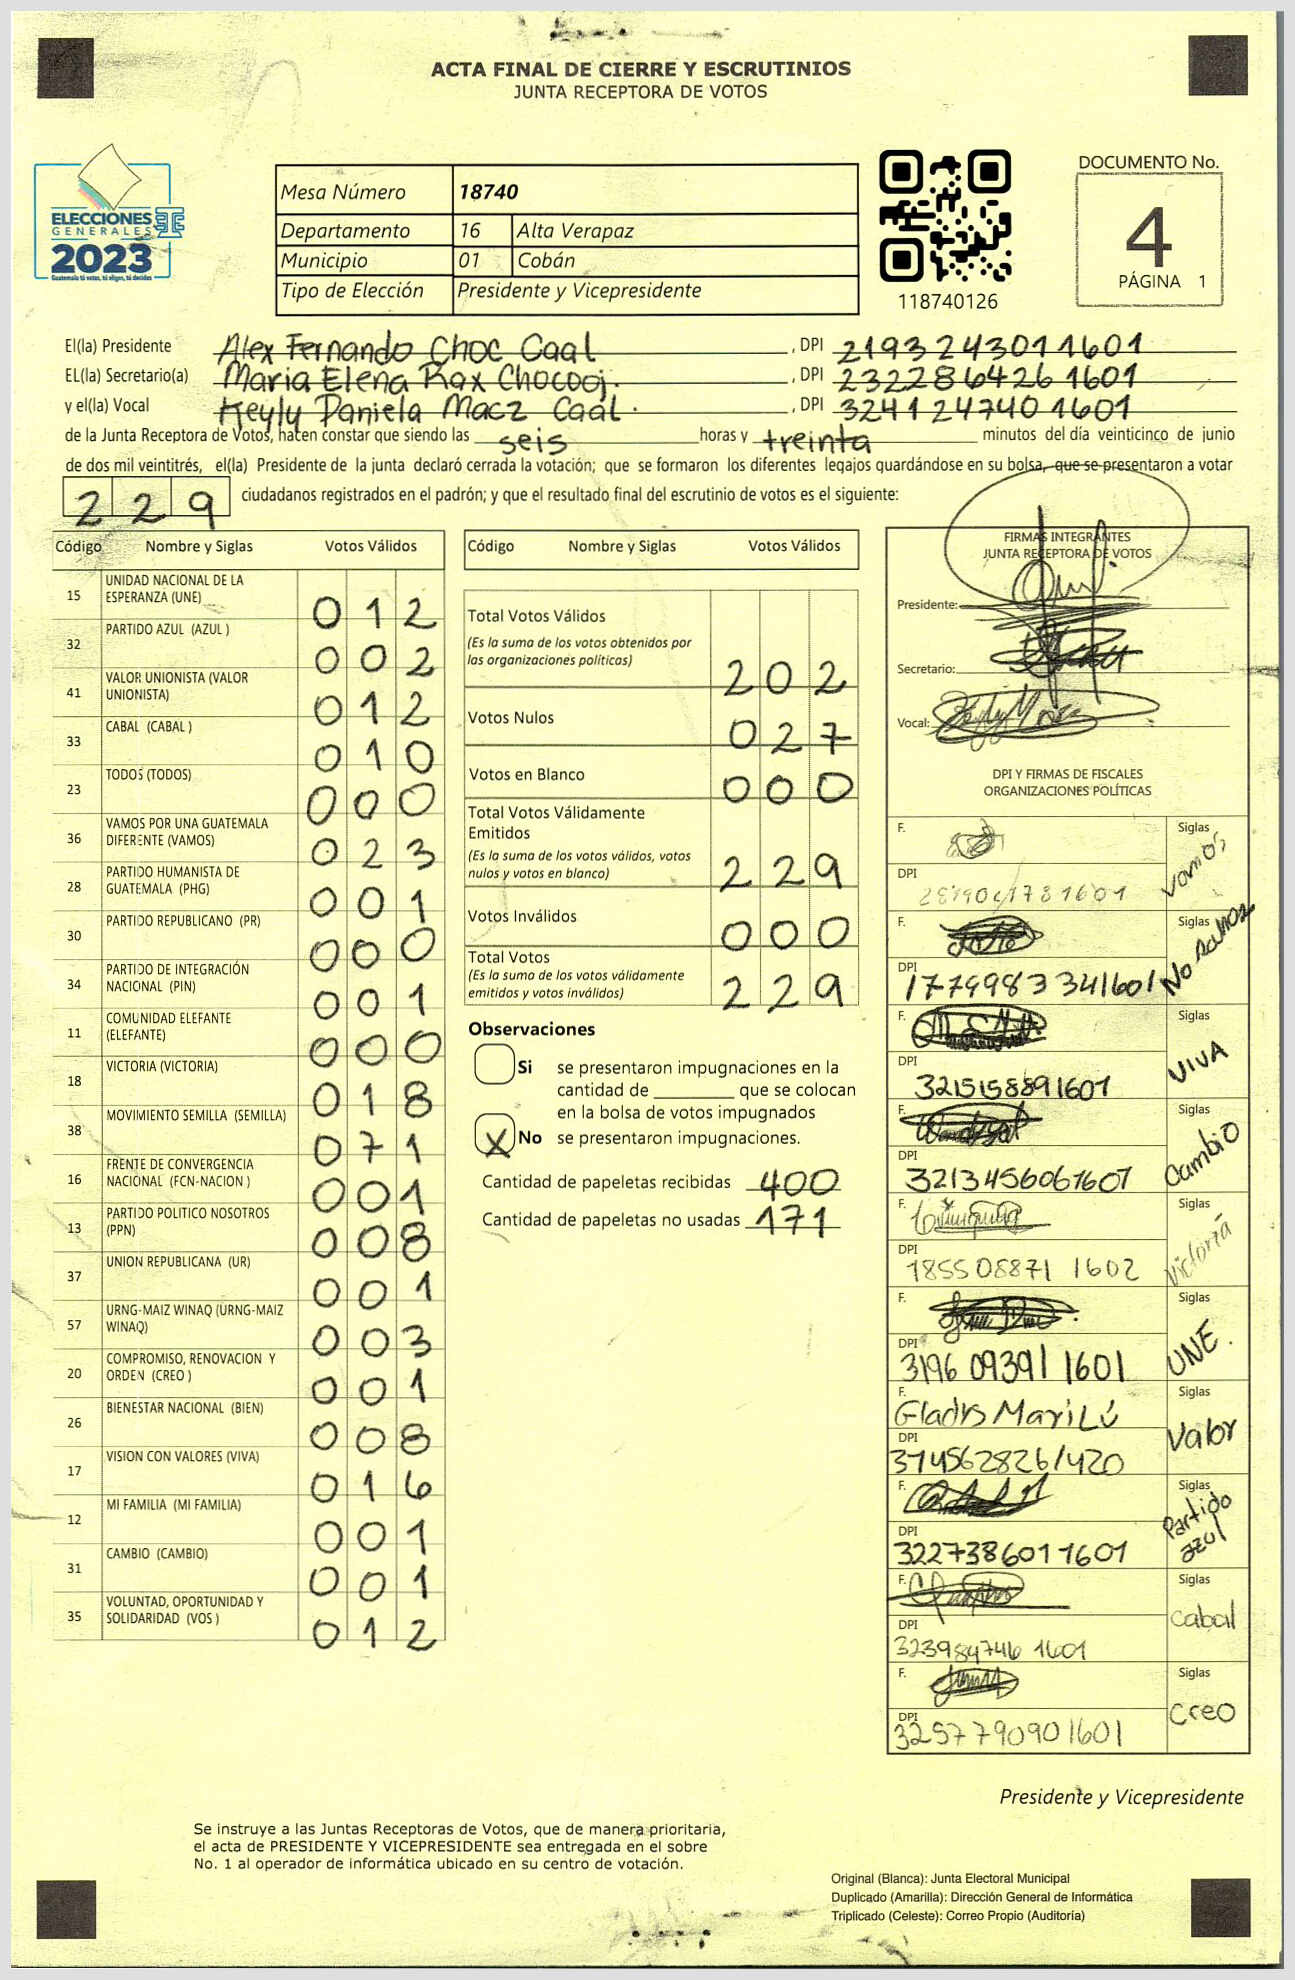 ACTA FINAL DE CIERRE Y ESCRUTINIOS
JUNTA RECEPTORA DE VOTOS
ELECCIONES
GENERALES
2023
Guatemala tú votas, tú eliges, tú decides
Mesa Número 18740
Departamento 16 Alta Verapaz
Municipio 01 Cobán
Tipo de Elección Presidente y Vicepresidente
118740126
DOCUMENTO No.
4
PÁGINA 1
El(la) Presidente Alex Fernando Choc Caal , DPI 2193243011601
EL(la) Secretario(a) Maria Elena Rax Chocooj. , DPI 2322864261601
y el(la) Vocal Keyly Daniela Macz Caal. , DPI 3241247401601
de la Junta Receptora de Votos, hacen constar que siendo las seis horas y treinta minutos del día veinticinco de junio
de dos mil veintitrés, el(la) Presidente de la junta declaró cerrada la votación; que se formaron los diferentes legajos guardándose en su bolsa, que se presentaron a votar
229 ciudadanos registrados en el padrón; y que el resultado final del escrutinio de votos es el siguiente:
Código Nombre y Siglas Votos Válidos
15 UNIDAD NACIONAL DE LA ESPERANZA (UNE) 012
32 PARTIDO AZUL (AZUL ) 002
41 VALOR UNIONISTA (VALOR UNIONISTA) 012
33 CABAL (CABAL ) 010
23 TODOS (TODOS) 000
36 VAMOS POR UNA GUATEMALA DIFERENTE (VAMOS) 023
28 PARTIDO HUMANISTA DE GUATEMALA (PHG) 001
30 PARTIDO REPUBLICANO (PR) 000
34 PARTIDO DE INTEGRACIÓN NACIONAL (PIN) 001
11 COMUNIDAD ELEFANTE (ELEFANTE) 000
18 VICTORIA (VICTORIA) 018
38 MOVIMIENTO SEMILLA (SEMILLA) 071
16 FRENTE DE CONVERGENCIA NACIONAL (FCN-NACION ) 001
13 PARTIDO POLITICO NOSOTROS (PPN) 008
37 UNION REPUBLICANA (UR) 001
57 URNG-MAIZ WINAQ (URNG-MAIZ WINAQ) 003
20 COMPROMISO, RENOVACION Y ORDEN (CREO ) 001
26 BIENESTAR NACIONAL (BIEN) 008
17 VISION CON VALORES (VIVA) 016
12 MI FAMILIA (MI FAMILIA) 001
31 CAMBIO (CAMBIO) 001
35 VOLUNTAD, OPORTUNIDAD Y SOLIDARIDAD (VOS ) 012
Código Nombre y Siglas Votos Válidos
Total Votos Válidos
(Es la suma de los votos obtenidos por
las organizaciones políticas) 202
Votos Nulos 027
Votos en Blanco 000
Total Votos Válidamente
Emitidos
(Es la suma de los votos válidos, votos
nulos y votos en blanco) 229
Votos Inválidos 000
Total Votos
(Es la suma de los votos válidamente
emitidos y votos inválidos) 229
Observaciones
Si se presentaron impugnaciones en la
cantidad de ________ que se colocan
en la bolsa de votos impugnados
X No se presentaron impugnaciones.
Cantidad de papeletas recibidas 400
Cantidad de papeletas no usadas 171
FIRMAS INTEGRANTES
JUNTA RECEPTORA DE VOTOS
Presidente:
Secretario:
Vocal:
DPI Y FIRMAS DE FISCALES
ORGANIZACIONES POLÍTICAS
F. Siglas vamos
DPI
F. Siglas
DPI 1779983341601
F. Siglas VIVA
DPI 3215158891601
F. Siglas Cambio
DPI 3213456061601
F. Siglas Victoria
DPI 1855088711602
F. Siglas UNE.
DPI 3196093911601
F. Gladys Marilú Siglas Valor
DPI 3745628261420
F. Siglas Partido azul
DPI 3227386011601
F. Siglas cabal
DPI 3239847461601
F. Siglas Creo
DPI 3257790901601
Presidente y Vicepresidente
Se instruye a las Juntas Receptoras de Votos, que de manera prioritaria,
el acta de PRESIDENTE Y VICEPRESIDENTE sea entregada en el sobre
No. 1 al operador de informática ubicado en su centro de votación.
Original (Blanca): Junta Electoral Municipal
Duplicado (Amarilla): Dirección General de Informática
Triplicado (Celeste): Correo Propio (Auditoría)